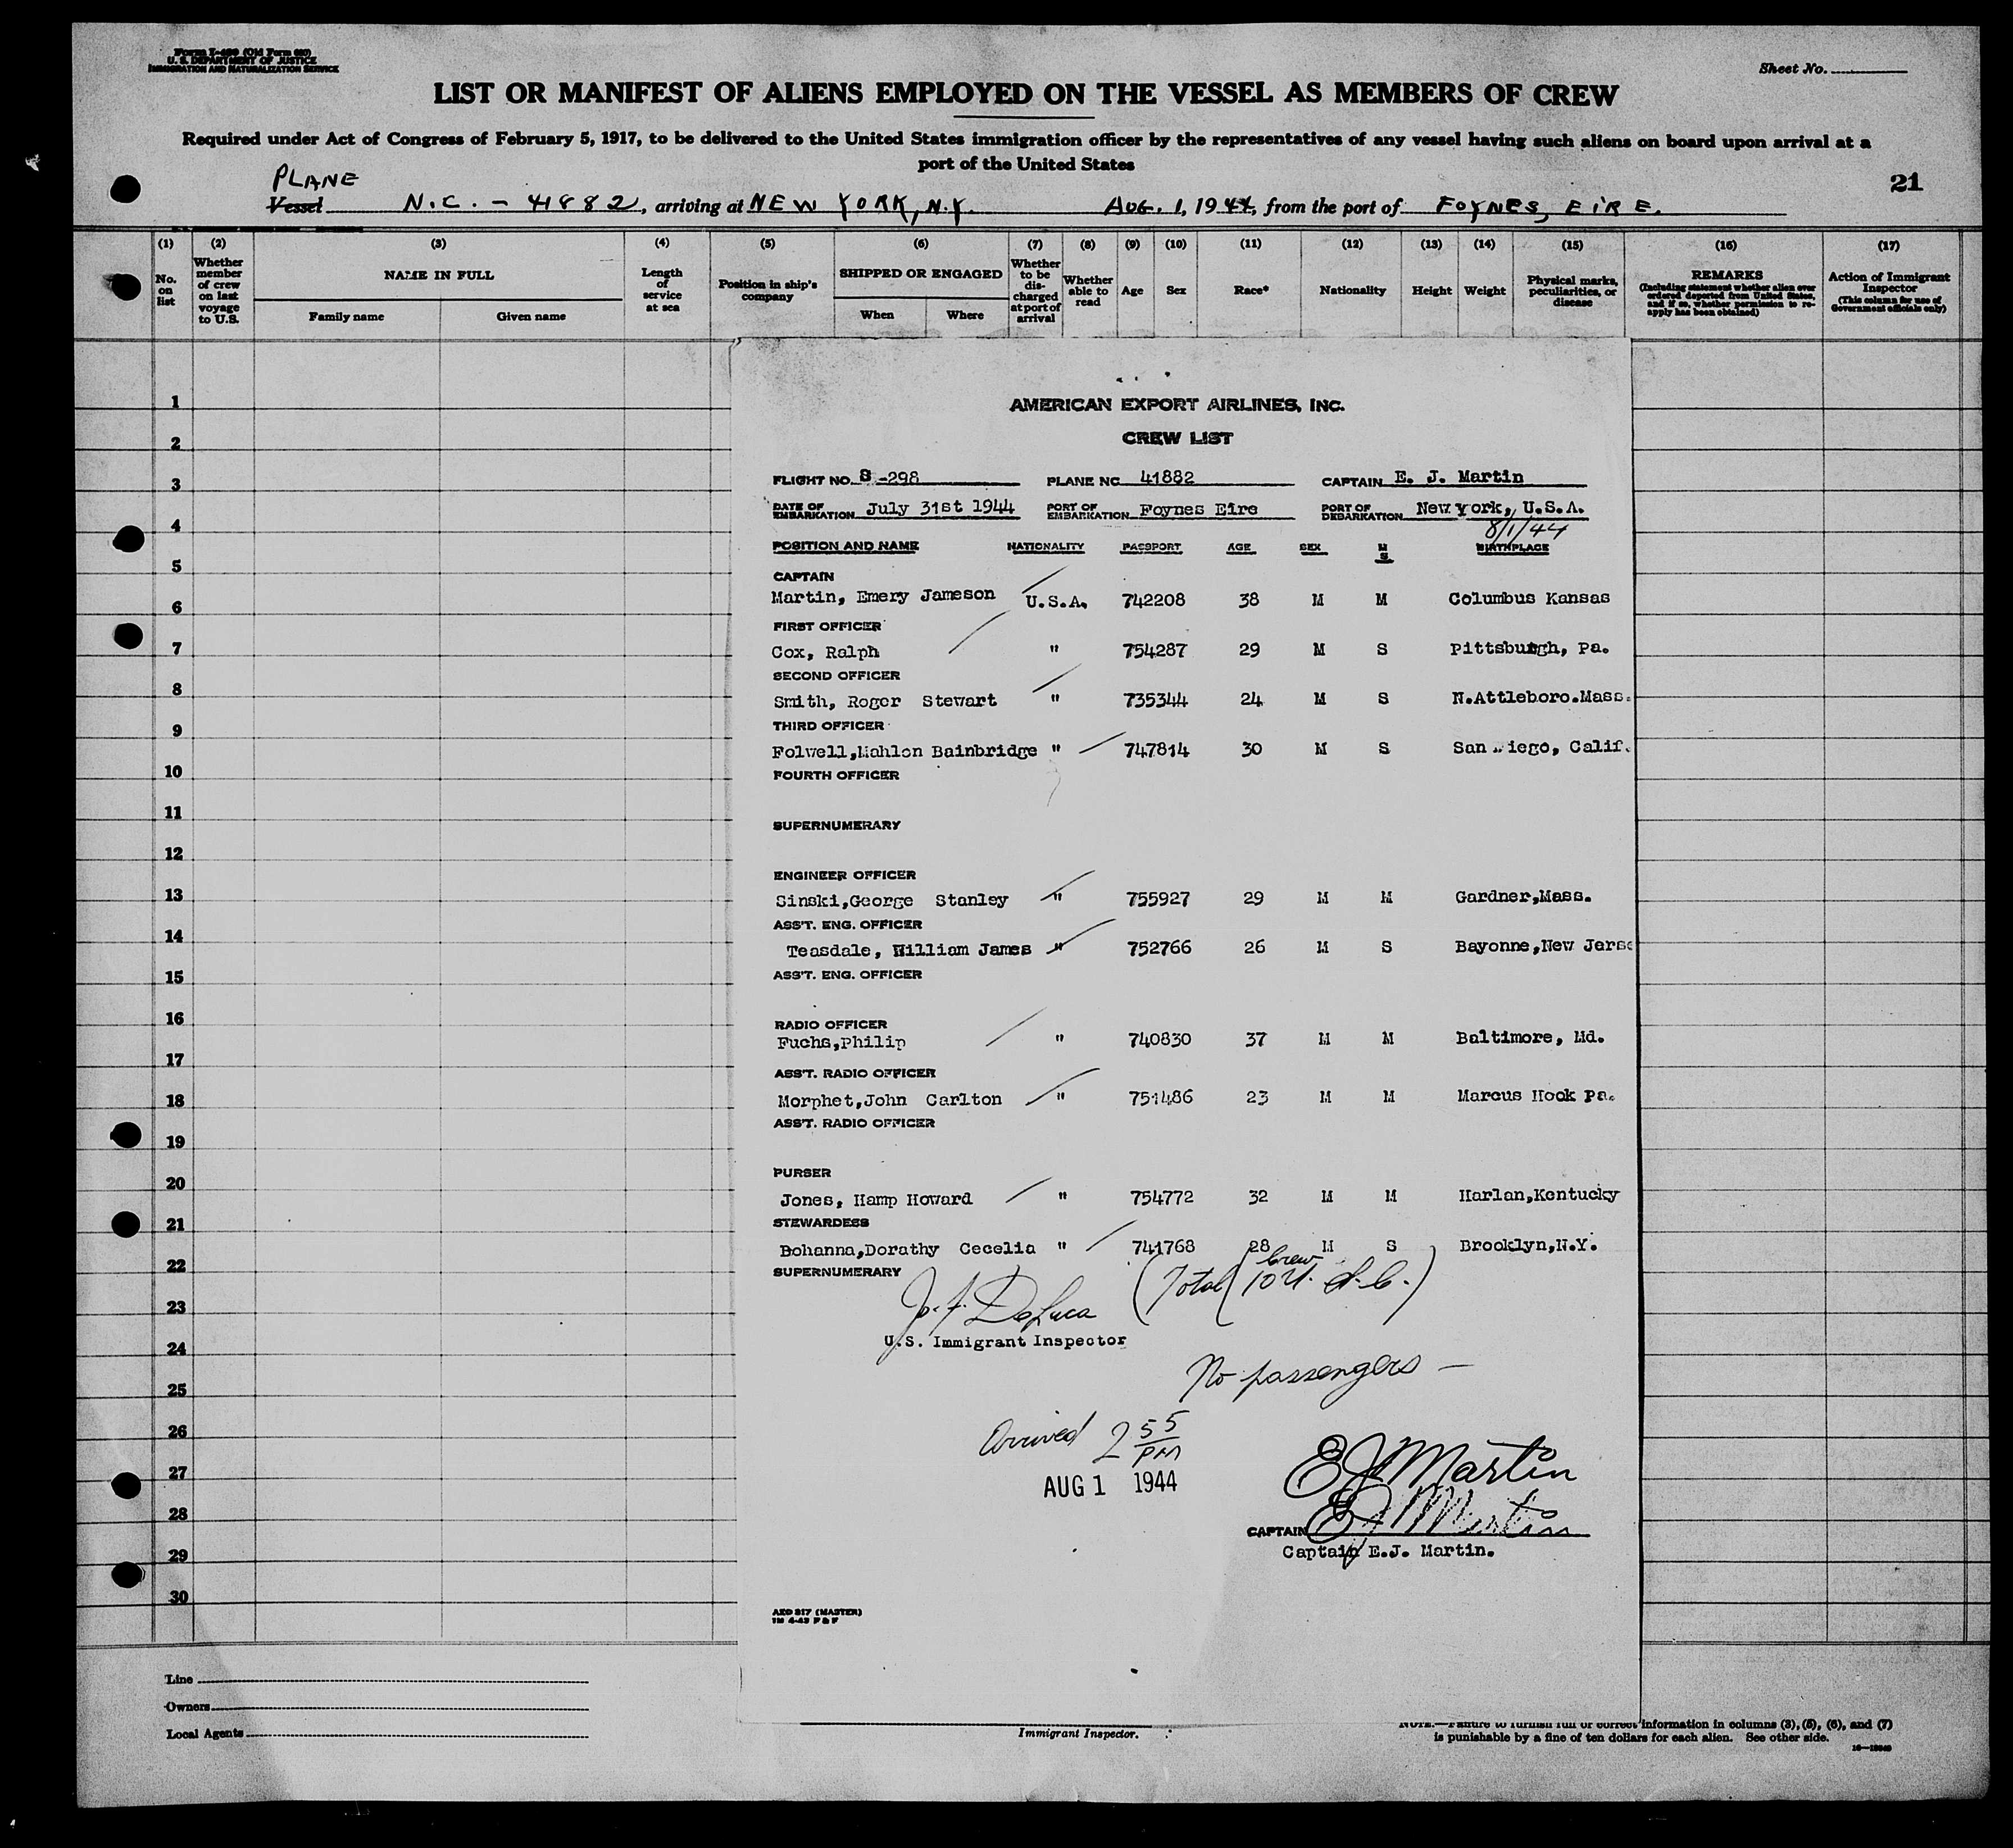 Form I-480 (Old Form 680)
U. S. DEPARTMENT OF JUSTICE
IMMIGRATION AND NATURALIZATION SERVICE
Sheet No.
LIST OR MANIFEST OF ALIENS EMPLOYED ON THE VESSEL AS MEMBERS OF CREW
Required under Act of Congress of February 5, 1917, to be delivered to the United States immigration officer by the representatives of any vessel having such aliens on board upon arrival at a
port of the United States
21
PLANE
Vessel N.C. - 41882, arriving at NEW YORK, N.Y. AUG. 1, 1944, from the port of FOYNES, EIRE.
(1) (2) (3) (4) (5) (6) (7) (8) (9) (10) (11) (12) (13) (14) (15) (16) (17)
No. on list
Whether member of crew on last voyage to U.S.
NAME IN FULL
Family name Given name
Length of service at sea
Position in ship's company
SHIPPED OR ENGAGED
When Where
Whether to be discharged at port of arrival
Whether able to read
Age
Sex
Race*
Nationality
Height
Weight
Physical marks, peculiarities, or disease
REMARKS
(Including statement whether alien ever ordered deported from United States, and if so, whether permission to reapply has been obtained)
Action of Immigrant Inspector
(This column for use of Government officials only)
1
2
3
4
5
6
7
8
9
10
11
12
13
14
15
16
17
18
19
20
21
22
23
24
25
26
27
28
29
30
AMERICAN EXPORT AIRLINES, INC.
CREW LIST
FLIGHT NO. S-298 PLANE NO 41882 CAPTAIN E. J. Martin
DATE OF EMBARKATION July 31st 1944 PORT OF EMBARKATION Foynes Eire PORT OF DEBARKATION New York, U.S.A.
8/1/44
POSITION AND NAME NATIONALITY PASSPORT AGE SEX M S BIRTHPLACE
CAPTAIN
Martin, Emery Jameson U.S.A. 742208 38 M M Columbus Kansas
FIRST OFFICER
Cox, Ralph " 754287 29 M S Pittsburgh, Pa.
SECOND OFFICER
Smith, Roger Stewart " 735344 24 M S N.Attleboro.Mass.
THIRD OFFICER
Folwell,Mahlon Bainbridge " 747814 30 M S San Diego, Calif.
FOURTH OFFICER
SUPERNUMERARY
ENGINEER OFFICER
Sinski,George Stanley " 755927 29 M M Gardner,Mass.
ASS'T. ENG. OFFICER
Teasdale, William James " 752766 26 M S Bayonne,New Jerse
ASS'T. ENG. OFFICER
RADIO OFFICER
Fuchs,Philip " 740830 37 M M Baltimore, Md.
ASS'T. RADIO OFFICER
Morphet,John Carlton " 751486 23 M M Marcus Hook Pa.
ASS'T. RADIO OFFICER
PURSER
Jones, Hamp Howard " 754772 32 M M Harlan,Kentucky
STEWARDESS
Bohanna,Dorathy Cecelia " 741768 28 M S Brooklyn,N.Y.
SUPERNUMERARY
(Total (crew 10 U.S.C.)
J. F. DeLuca
U.S. Immigrant Inspector
No passengers —
Arrived 2 55 PM
AUG 1 1944
E J Martin
CAPTAIN E J Martin
Captain E.J. Martin.
AEO 817 (MASTER)
1M 4-43 P & F
Line
Owners
Local Agents
Immigrant Inspector.
NOTE.—Failure to furnish full or correct information in columns (3), (5), (6), and (7)
is punishable by a fine of ten dollars for each alien. See other side.